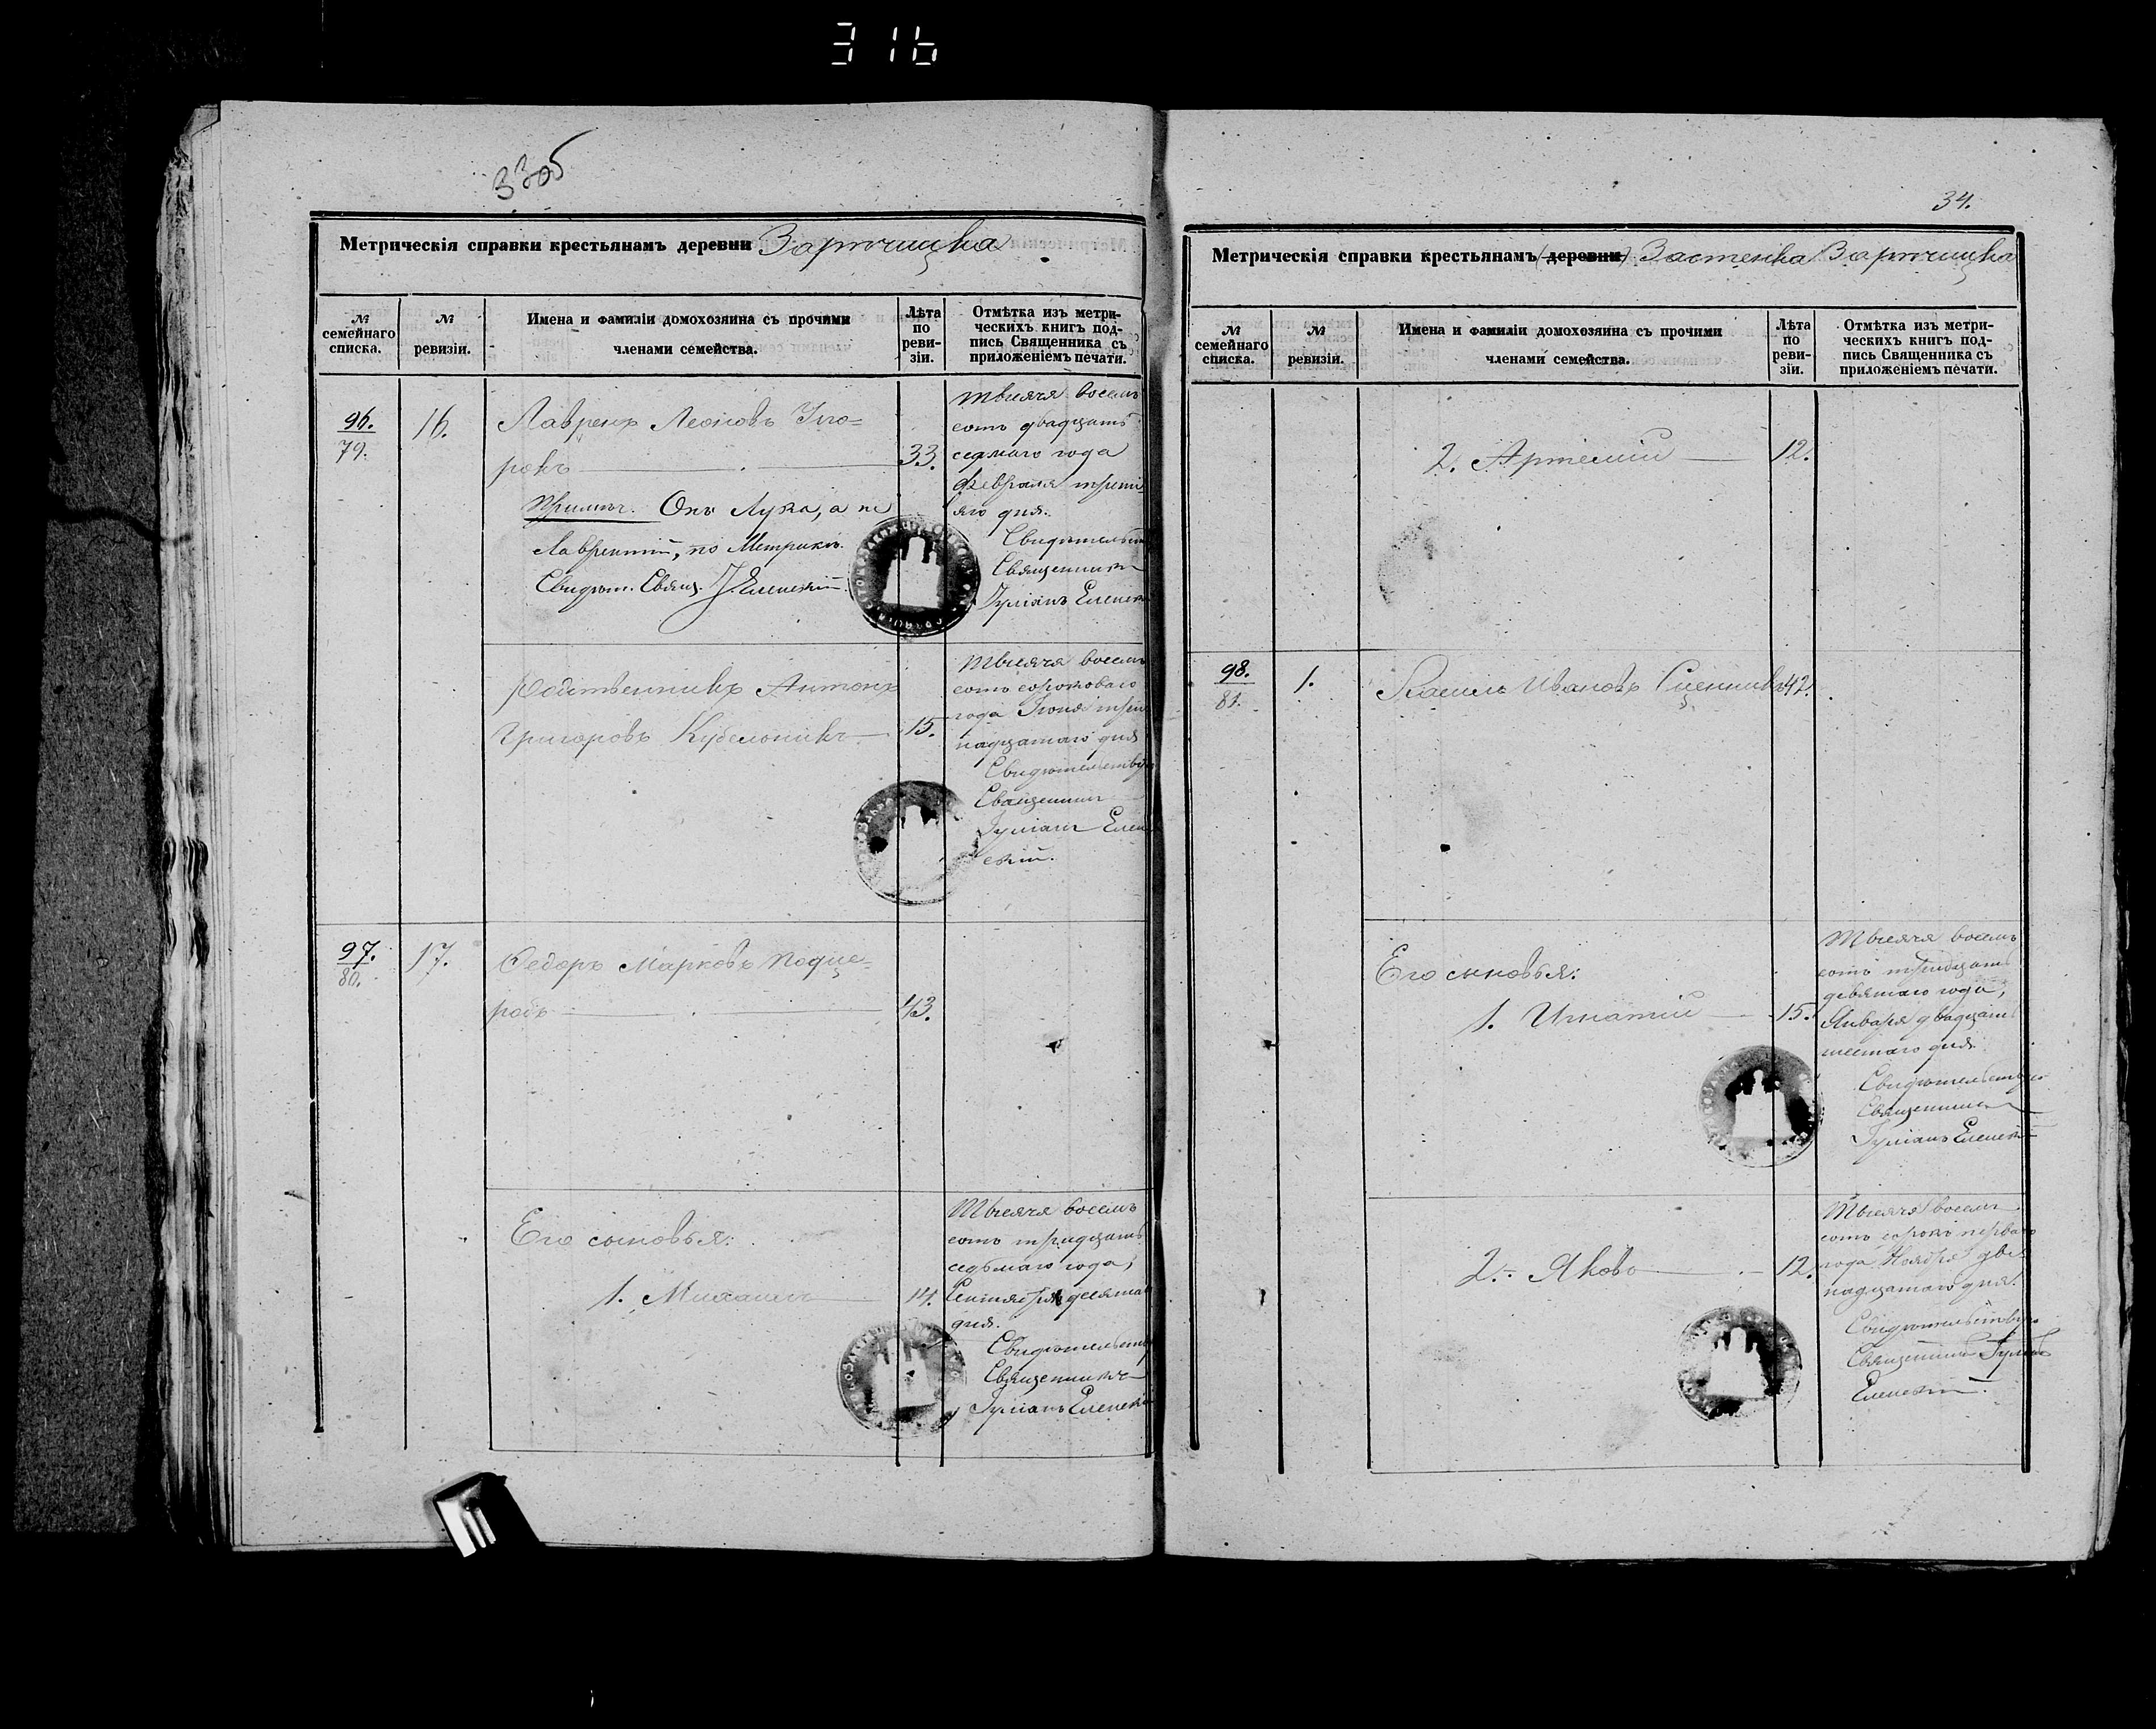 316
33об
Метрическія справки крестьянамъ деревни Зарѣчицка
№ семейнаго списка.
№ ревизіи.
Имена и фамиліи домохозяина съ прочими членами семейства.
Лѣта по ревизіи.
Отмѣтка изъ метрическихъ книгъ подпись Священника съ приложеніемъ печати.
96.
79.
16.
Лаврен Леоновъ
33.
Примѣч. Онъ Лука, а не
Лаврентій, по Метрикѣ.
Свидѣт. Свящ. І. Еленскій
Тысяча восемь
сотъ двадцать
седмаго года
Февраля трети-
яго дня.
Священникъ
Іуліанъ
Родственникъ Антонъ
Григоровъ
15.
Тысяча восемь
сотъ сороковаго
года Іюня
надцатаго дня
Священникъ
Іуліанъ Елен
скій.
97.
80.
17.
Федоръ Марковъ Подце-
робъ
43.
Его сыновья:
1. Михаилъ
14.
Тысяча восемь
сотъ тридцать
седьмаго года,
Сентября десятаго
дня.
Священникъ
Іуліанъ
34.
Метрическія справки крестьянамъ (деревни) Застенка Зарѣчицка
№ семейнаго списка.
№ ревизіи.
Имена и фамиліи домохозяина съ прочими членами семейства.
Лѣта по ревизіи.
Отмѣтка изъ метрическихъ книгъ подпись Священника съ приложеніемъ печати.
2. Артемій
12.
98.
81.
1.
Ивановъ
42.
Его сыновья:
1. Игнатій
15.
Тысяча восемь
сотъ тридцать
девятаго года,
Января двадцать
шестаго дня
Свидѣтельствуетъ
Священникъ
Іуліанъ Еленскій
2. Яковъ
12.
Тысяча восемь
сотъ сорокъ перваго
года Ноября две
надцатаго дня.
Священникъ
Еленскій.